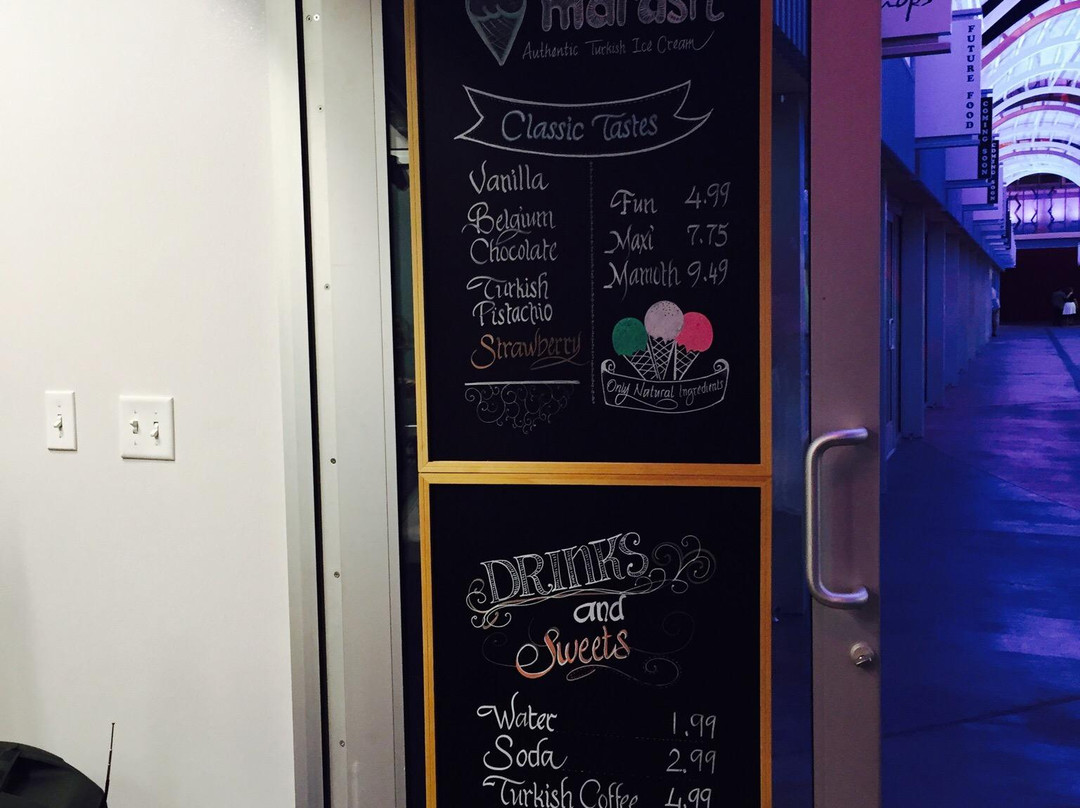 marash
Authentic Turkish Ice Cream
Classic Tastes
Vanilla
Belgium
Chocolate
Turkish
Pistachio
Strawberry
Fun 4.99
Maxi 7.75
Mamuth 9.49
Only Natural Ingredients
DRINKS
and
Sweets
Water 1.99
Soda 2.99
Turkish Coffee 4.99
FUTURE FOOD
COMING SOON
COMING SOON